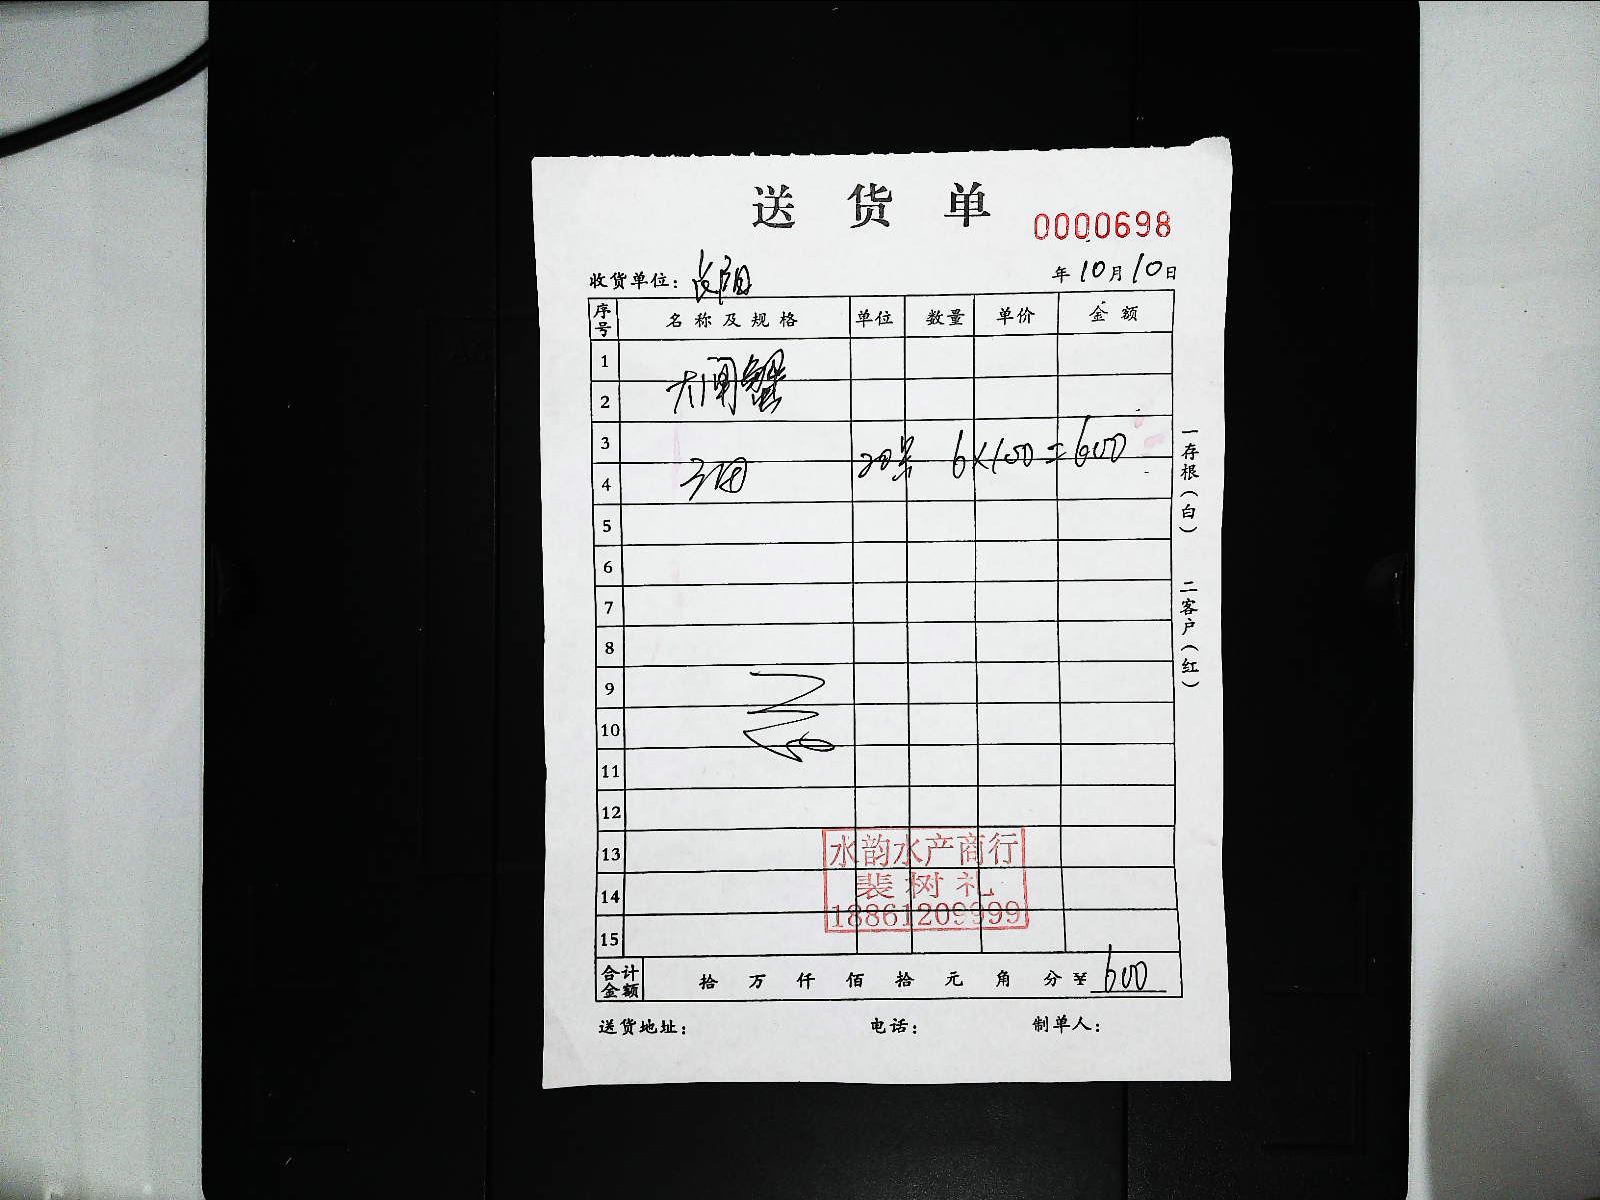 送货单
0000698
收货单位：
年10月10日
序号 名称及规格 单位 数量 单价 金额
1
大闸蟹
2
3
20只 6×100=600
4
5
6
7
8
9
10
11
12
13
14
15
水韵水产商行
裴树礼
18861209999
合计金额 拾 万 仟 佰 拾 元 角 分 ¥ 600
送货地址： 电话： 制单人：
一存根（白）
二客户（红）